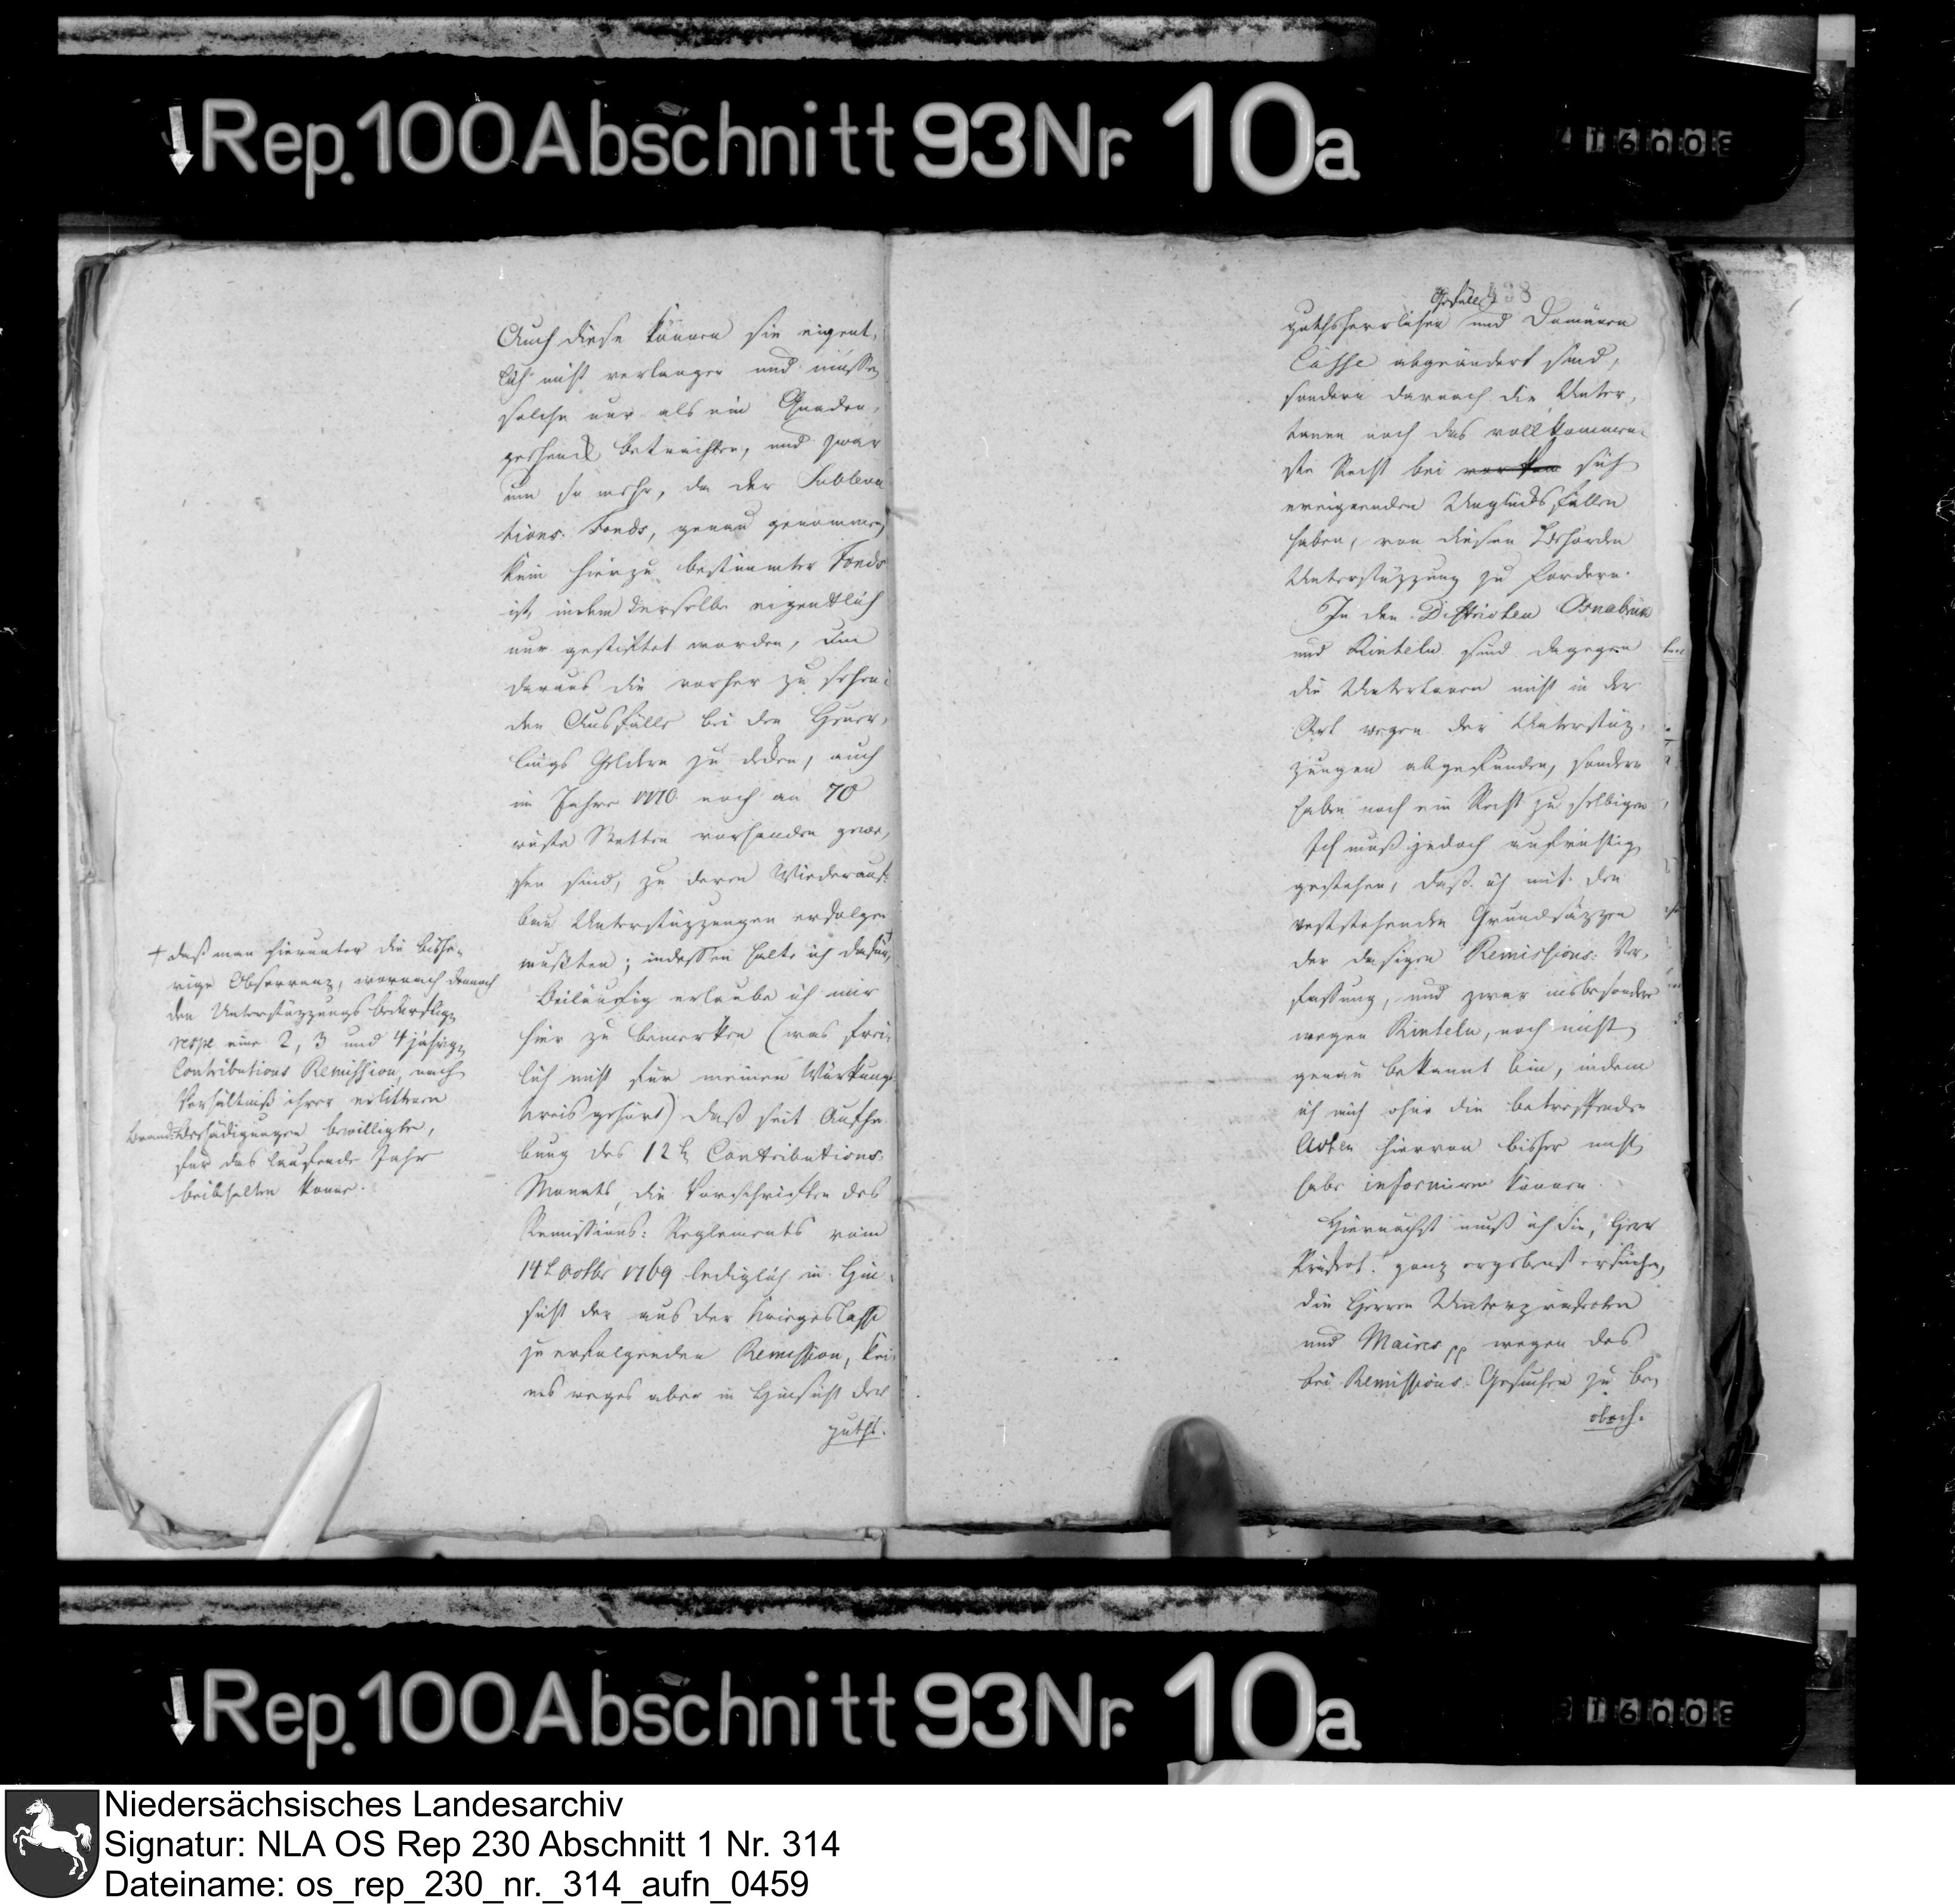 Rep. 100 Abschnitt 93 Nr. 10a
Auch diese können sie eigent-
lich nicht verlangen und müssen
solche nur als ein Gnaden-
geschenk betrachten, und zwar
um so mehr, da der Subleva
tions-Fonds, genau genommen,
kein hierzu bestimmter Fonds
ist, indem derselbe eigentlich
nur gestiftet worden, um
daraus die vorher zu sehen-
den Ausfälle bei den Heuer-
lings Geldern zu decken, auch
im Jahre 1770 noch an 70
wüste Stetten vorhanden gewe-
sen sind, zu deren Wiederauf-
bau Unterstüzzungen erfolgen
mußten; indessen halte ich dafür,
+ daß man hierunter die bishe-
rige Observanz, wornach dennoch
den Unterstüzzungs bedürftigen
resp. eine 2, 3 und 4 jährige
Contributions Remission nach
Verhältniß ihrer erlittenen
Brand-Beschädigungen bewilligte,
für das laufende Jahr
beibehalten könne.
Beiläufig erlaube ich mir
hier zu bemerken (was frei-
lich nicht für meinen Würkungs-
kreis gehört) daß seit Aufhe-
bung des 12t Contributions-
Monats, die Vorschriften des
Remissions-Reglements vom
14t Octbr 1769 lediglich in Hin-
sicht der aus der Kriegescasse
zu erfolgenden Remission, kei-
nes weges aber in Hinsicht der
guths-
438
gutsherrlichen Gefälle und Domänen
Casse abgeändert sind,
sondern darnach die Unter-
tanen noch das vollkommen-
ste Recht bei sich
ereignenden Unglücksfällen
haben, von diesen Behörden
Unterstüzzung zu fordern.
In den Districten Osnabrük
und Rinteln sind dagegen
die Untertanen nicht in der
Art wegen der Unterstüz-
zungen abgefunden, sondern
haben noch ein Recht zu selbigen
Ich muß jedoch aufrichtig
gestehen, daß ich mit den
veststehenden Grundsäzzen
der dasigen Remissions-Ver-
fassung, und zwar insbesondere
wegen Rinteln, noch nicht
genau bekannt bin, indem
ich mich ohne die betreffenden
Acten hiervon bisher nicht
habe informiren können.
Hiernächst muß ich Sie, Herr
Präfect! ganz ergebenst ersuchen,
die Herren Unterpräfecten
und Maires pp wegen des
bei Remissions-Gesuchen zu be-
obach-
Rep. 100 Abschnitt 93 Nr. 10a
Niedersächsisches Landesarchiv
Signatur: NLA OS Rep 230 Abschnitt 1 Nr. 314
Dateiname: os_rep_230_nr._314_aufn_0459